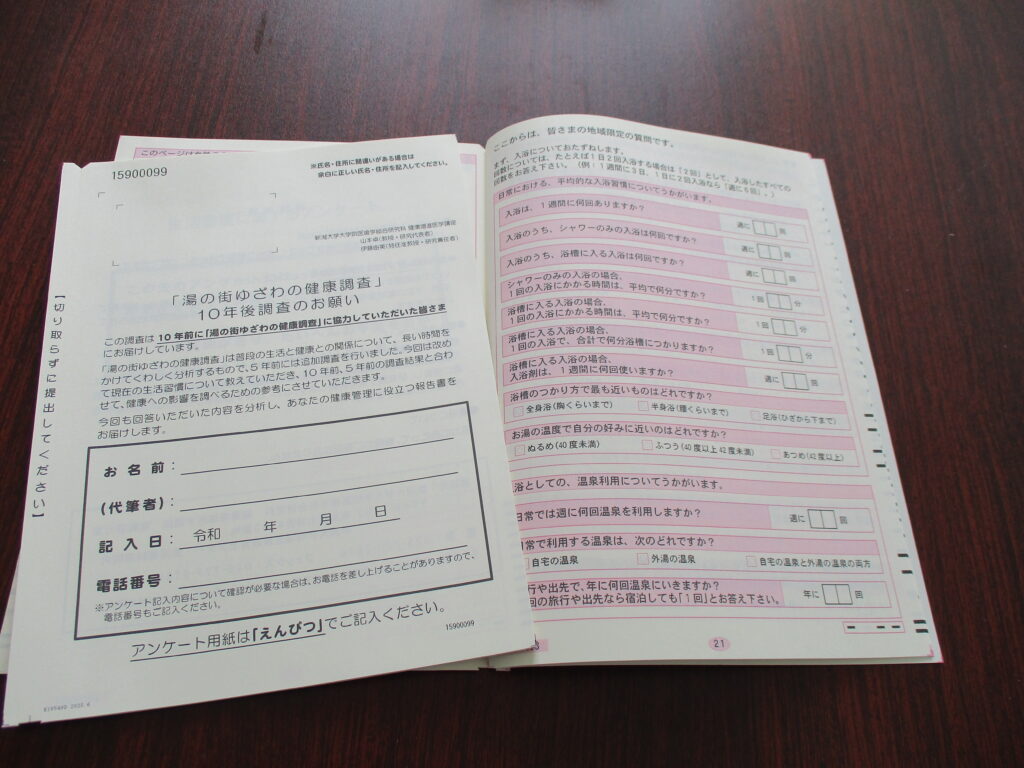 このページは
※氏名・住所に間違いがある場合は
余白に正しい氏名・住所を記入してください。
15900099
新潟大学大学院医歯学総合研究科 健康増進医学講座
山本卓(教授・研究代表者)
伊藤由美(特任准教授・研究責任者)
「湯の街ゆざわの健康調査」
10年後調査のお願い
この調査は10年前に「湯の街ゆざわの健康調査」に協力していただいた皆さま
にお届けしています。
「湯の街ゆざわの健康調査」は普段の生活と健康との関係について、長い時間を
かけてくわしく分析するもので、5年前には追加調査を行いました。今回は改め
て現在の生活習慣について教えていただき、10年前、5年前の調査結果と合わ
せて、健康への影響を調べるための参考にさせていただきます。
今回も回答いただいた内容を分析し、あなたの健康管理に役立つ報告書を
お届けします。
お名前:
(代筆者):
記入日: 令和 年 月 日
電話番号:
※アンケート記入内容について確認が必要な場合は、お電話を差し上げることがありますので、
電話番号もご記入ください。
アンケート用紙は「えんぴつ」でご記入ください。
15900099
【切り取らずに提出してください】
ここからは、皆さまの地域限定の質問です。
まず、入浴についておたずねします。
回数については、たとえば1日2回入浴する場合は「2回」として、入浴したすべての
回数をお答え下さい。(例:1週間に3日、1日に2回入浴なら「週に6回」。)
日常における、平均的な入浴習慣についてうかがいます。
入浴は、1週間に何回ありますか? 週に 回
入浴のうち、シャワーのみの入浴は何回ですか? 週に 回
入浴のうち、浴槽に入る入浴は何回ですか? 週に 回
シャワーのみの入浴の場合、
1回の入浴にかかる時間は、平均で何分ですか? 1回 分
浴槽に入る入浴の場合、
1回の入浴にかかる時間は、平均で何分ですか? 1回 分
浴槽に入る入浴の場合、
1回の入浴で、合計で何分浴槽につかりますか? 1回 分
浴槽に入る入浴の場合、
入浴剤は、1週間に何回使いますか? 週に 回
浴槽のつかり方で最も近いものはどれですか?
全身浴(胸くらいまで) 半身浴(腰くらいまで) 足浴(ひざから下まで)
お湯の温度で自分の好みに近いのはどれですか?
ぬるめ(40度未満) ふつう(40度以上42度未満) あつめ(42度以上)
浴としての、温泉利用についてうかがいます。
日常では週に何回温泉を利用しますか? 週に 回
日常で利用する温泉は、次のどれですか?
自宅の温泉 外湯の温泉 自宅の温泉と外湯の温泉の両方
行や出先で、年に何回温泉にいきますか? 年に 回
回の旅行や出先なら宿泊しても「1回」とお答え下さい。
21